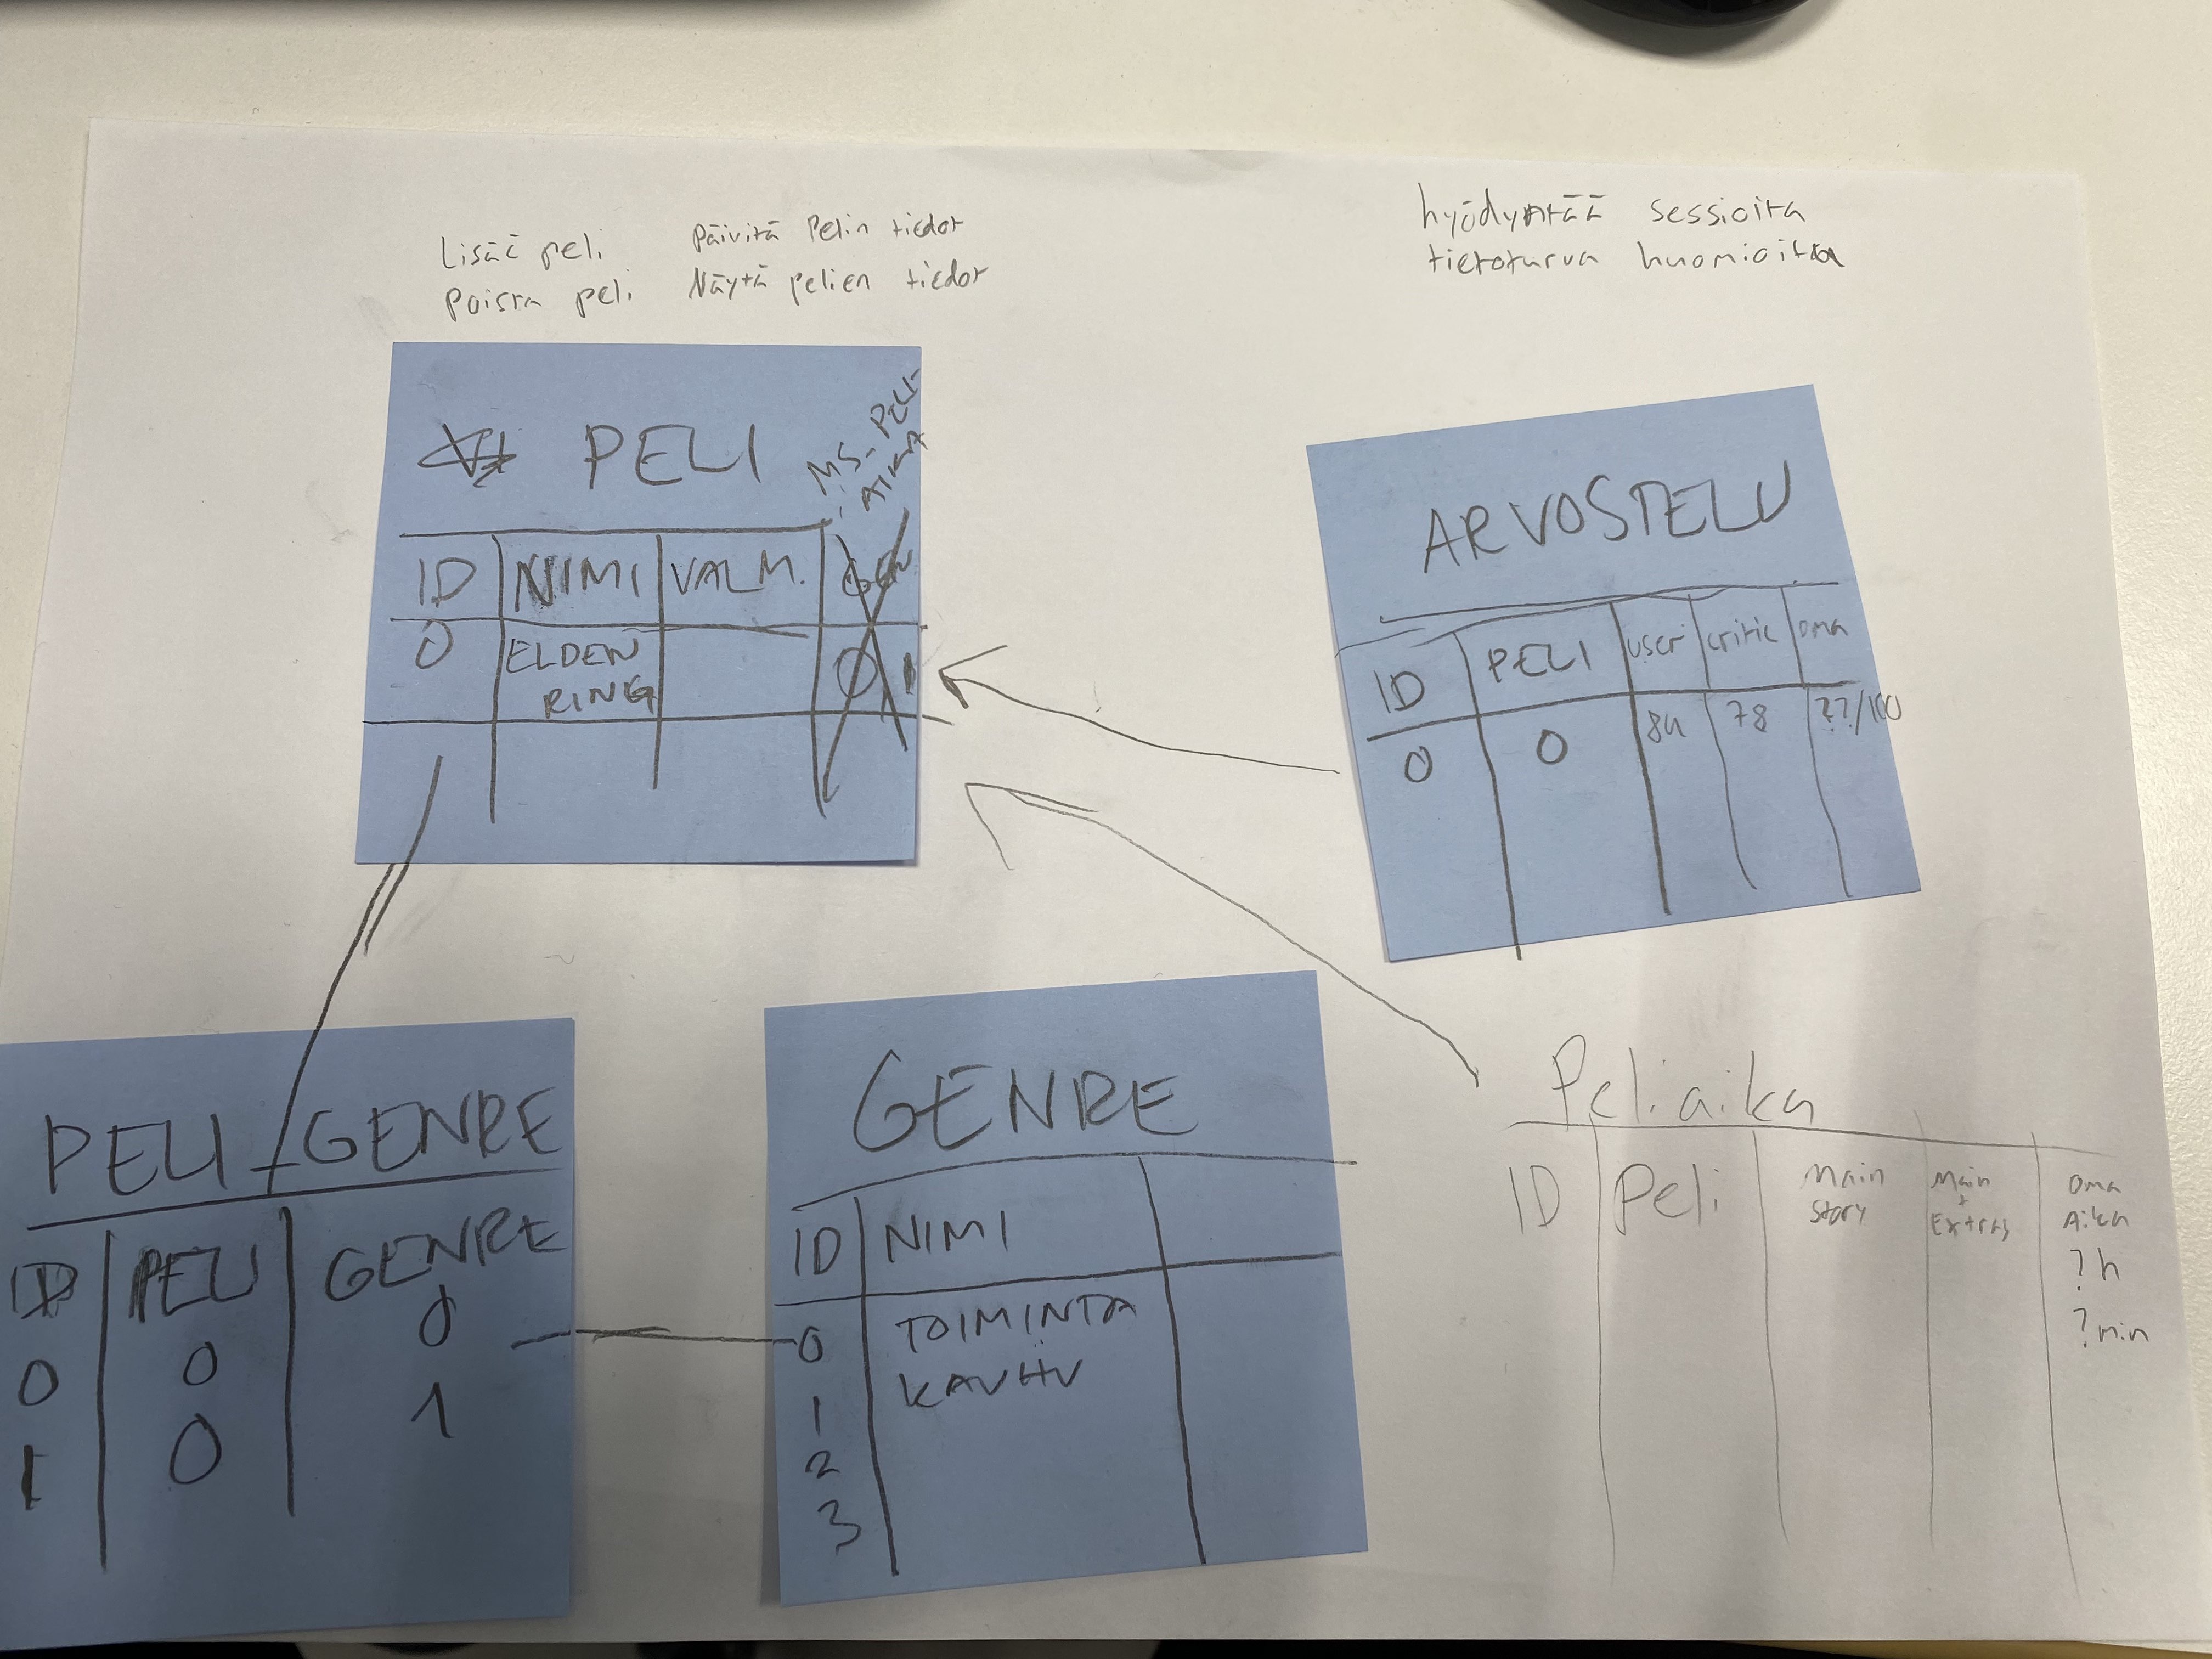 Lisää peli
Poista peli
Päivitä Pelin tiedot
Näytä pelien tiedot
hyödyntää sessioita
tietoturva huomioitava
PELI
MS-PELI-
AIKA
ID NIMI VALM. GEN
0 ELDEN 0 1
RING
ARVOSTELU
ID PELI user critic oma
0 0 84 78 ??/100
PELI_GENRE
ID PELI GENRE
0 0 0
1 0 1
GENRE
ID NIMI
0 TOIMINTA
1 KAUHU
2
3
Peliaika
ID Peli Main Main Oma
story + Aika
Extras ?h
?min